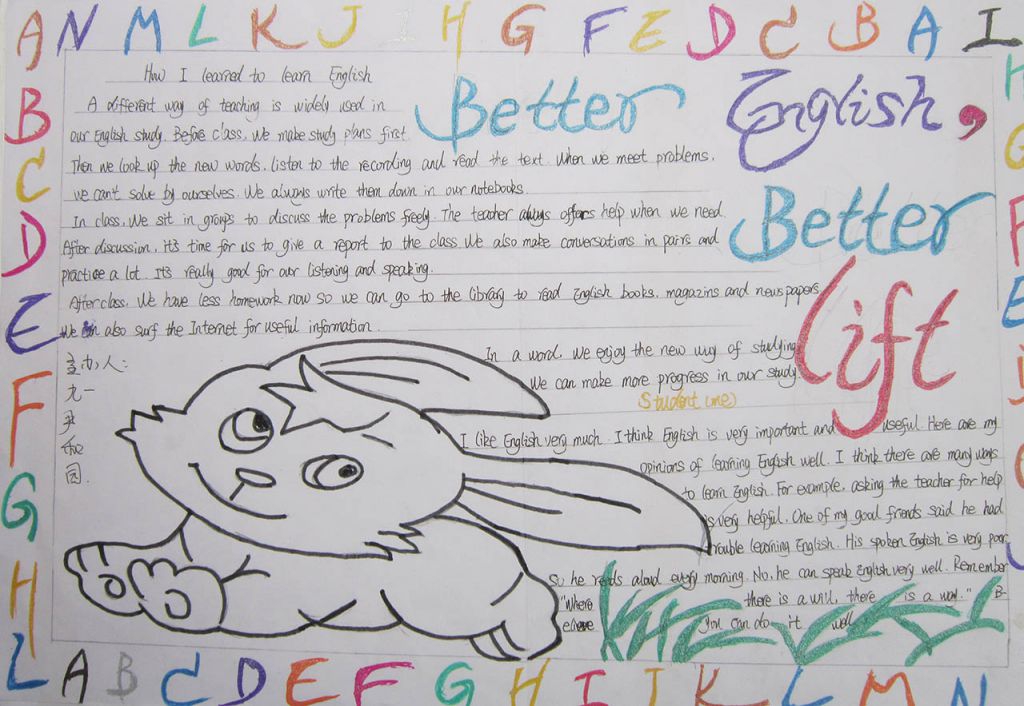 A N M L K J I H G F E D C B A I
How I learned to learn English
A different way of teaching is widely used in
our English study. Before class, We make study plans first
Then we look up the new words, listen to the recording and read the text. When we meet problems,
we can't solve by ourselves. We always write them down in our notebooks.
In class, We sit in groups to discuss the problems freely. The teacher always offers help when we need.
After discussion, it's time for us to give a report to the class. We also make conversations in pairs and
practice a lot. It's really good for our listening and speaking.
After class, We have less homework now so we can go to the library to read English books, magazins and newspapers
We can also surf the Internet for useful information.
Better English,
Better
lift
In a word, we enjoy the new way of studying
We can make more progress in our study.
Student (me)
I like English very much. I think English is very important and useful. Here are my
opinions of learning English well. I think there are many ways
to learn English. For example, asking the teacher for help
is very helpful. One of my good friends said he had
trouble learning English. His spoken English is very poor
So he reads aloud every morning. No, he can speak English very well. Remember
"Where there is a will, there is a way." B-
elieve you can do it well
主办人:
尤一
尹
园.
B
C
D
E
F
G
H
L
H
G
F
E
A B C D E F G H I J K L M N